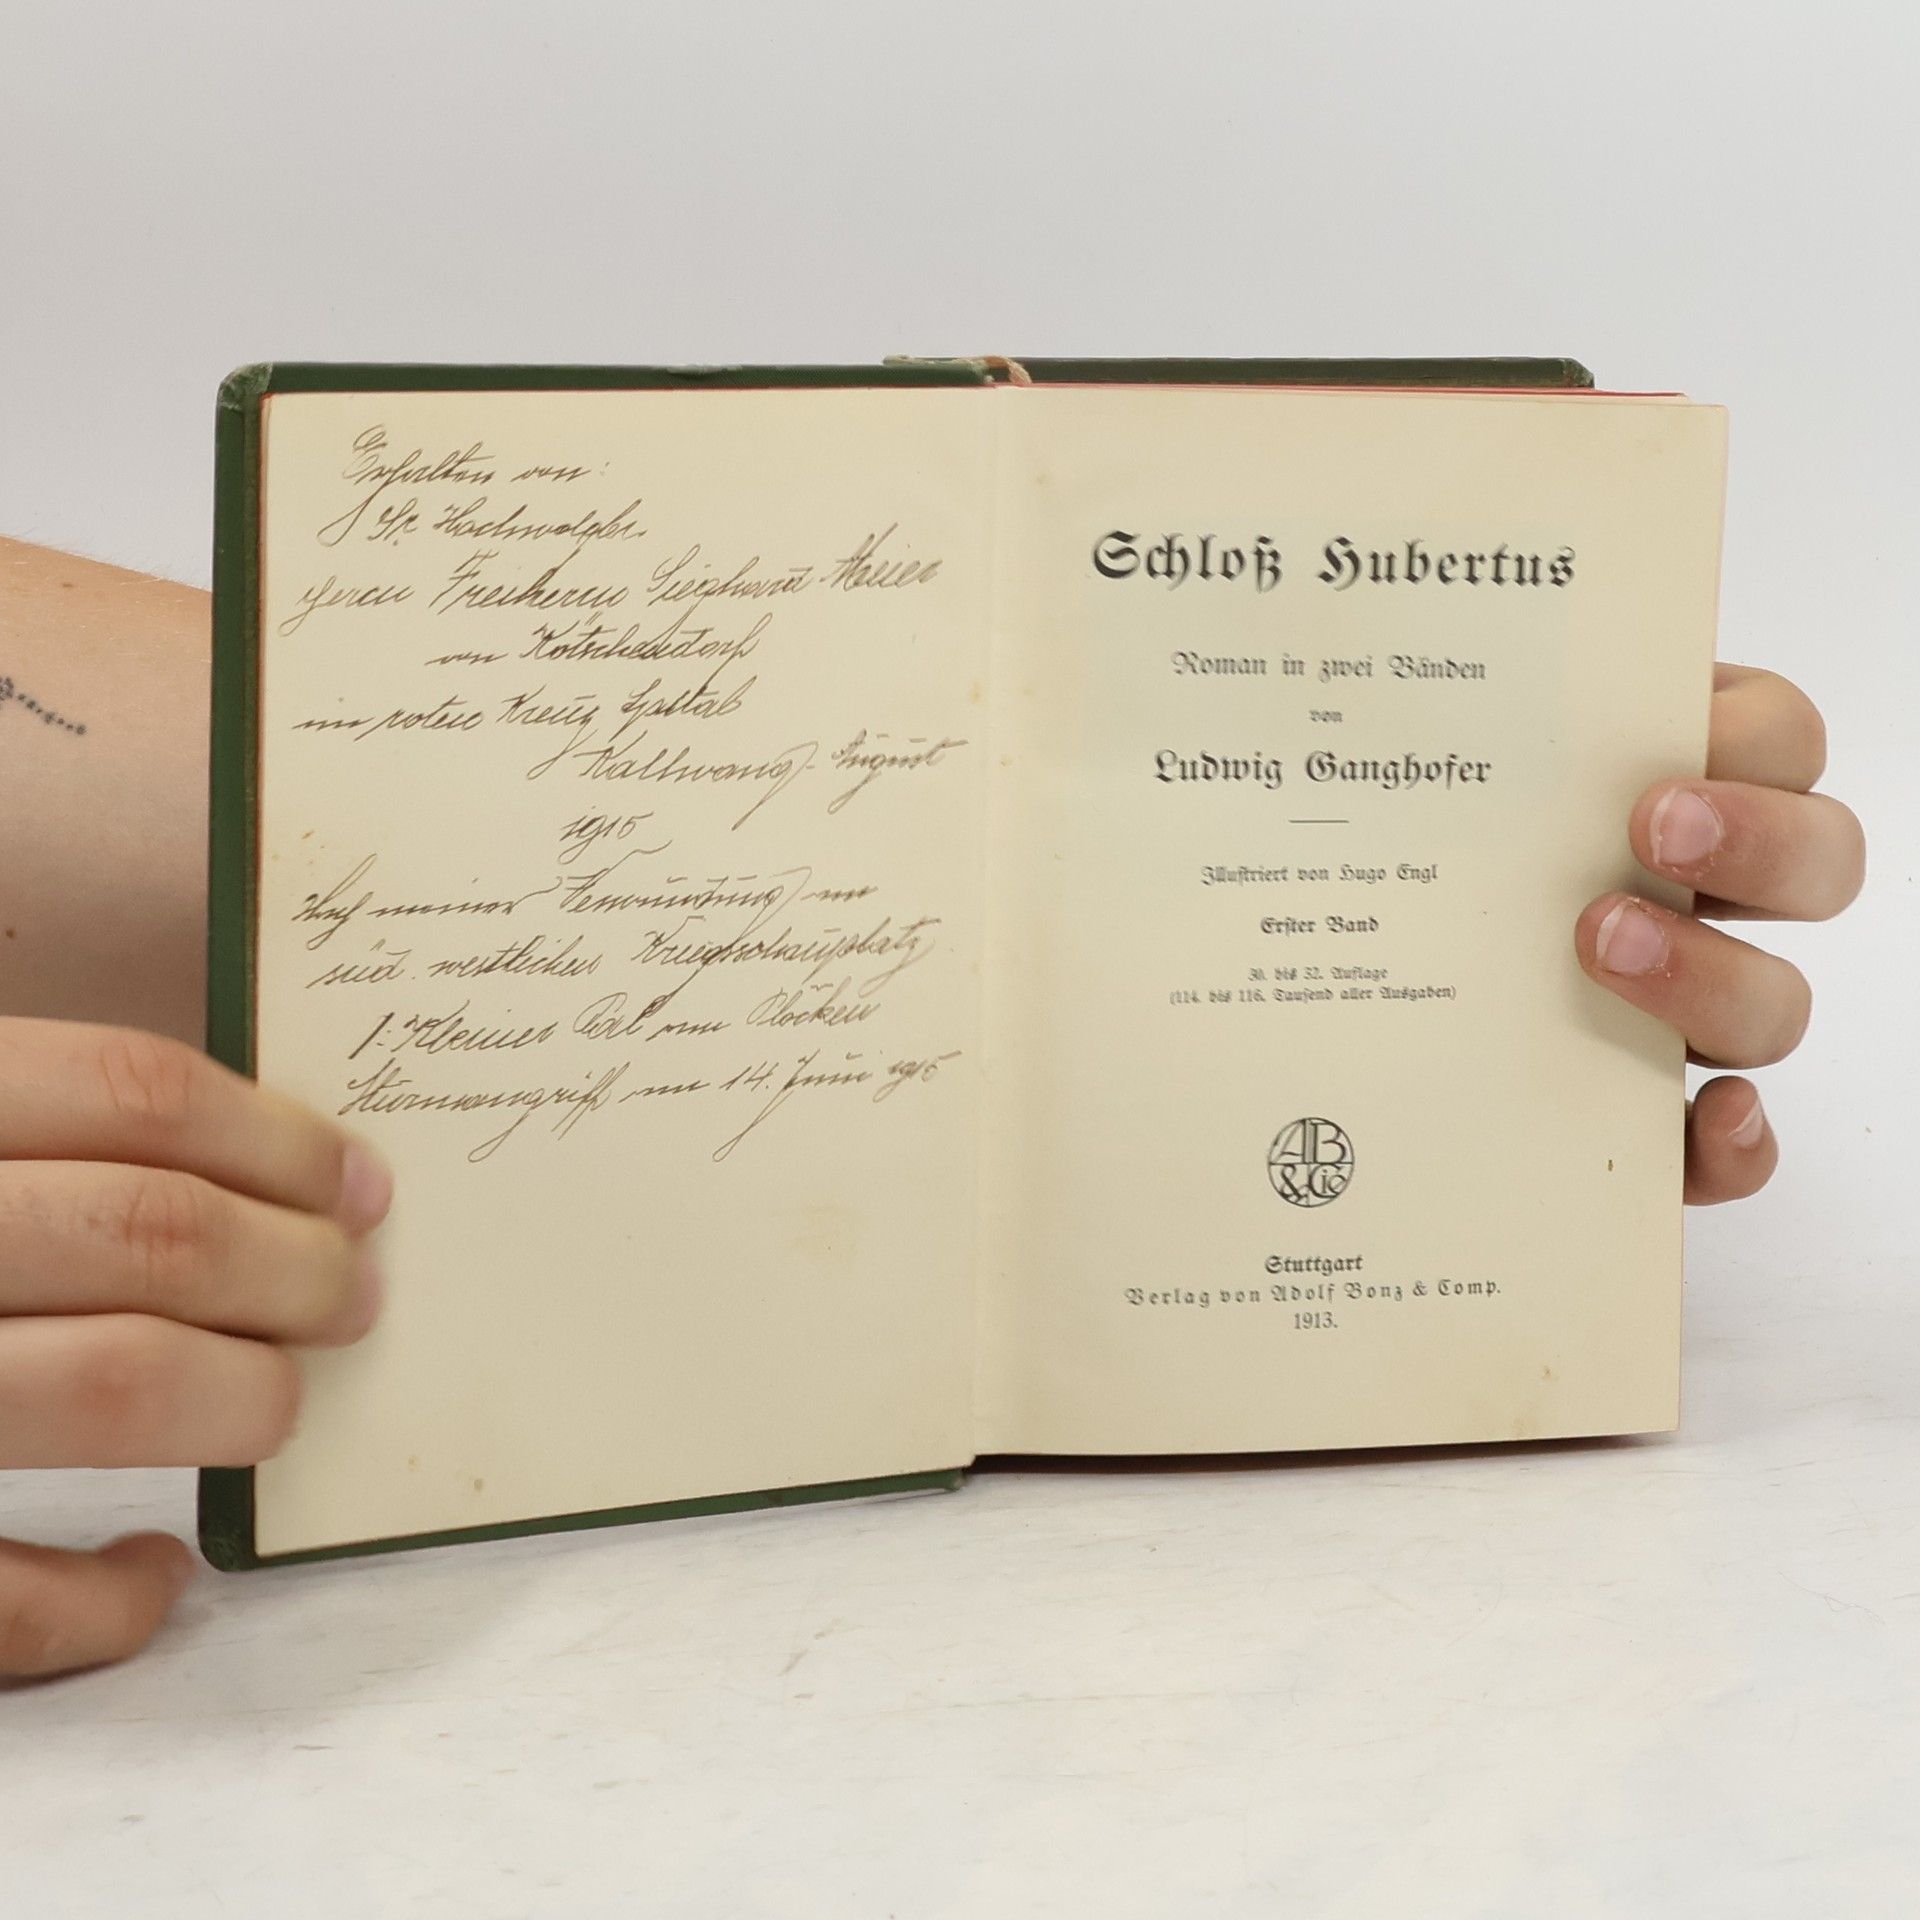 Erhalten von:
Sr. Hochwolgeb.
Herrn Freiherrn Sieghard Meier
von Kötschendorf
im roten Kreuz Spital
Kallwang August
1915
Nach meiner Verwundung am
süd. westlichen Kriegsschauplatz
Kleiner Pal am Plöcken
Sturmangriff am 14. Juni 1915
Schloß Hubertus
Roman in zwei Bänden
von
Ludwig Ganghofer
Illustriert von Hugo Engl
Erster Band
30. bis 32. Auflage
(114. bis 116. Tausend aller Ausgaben)
AB
& Cie
Stuttgart
Verlag von Adolf Bonz & Comp.
1913.